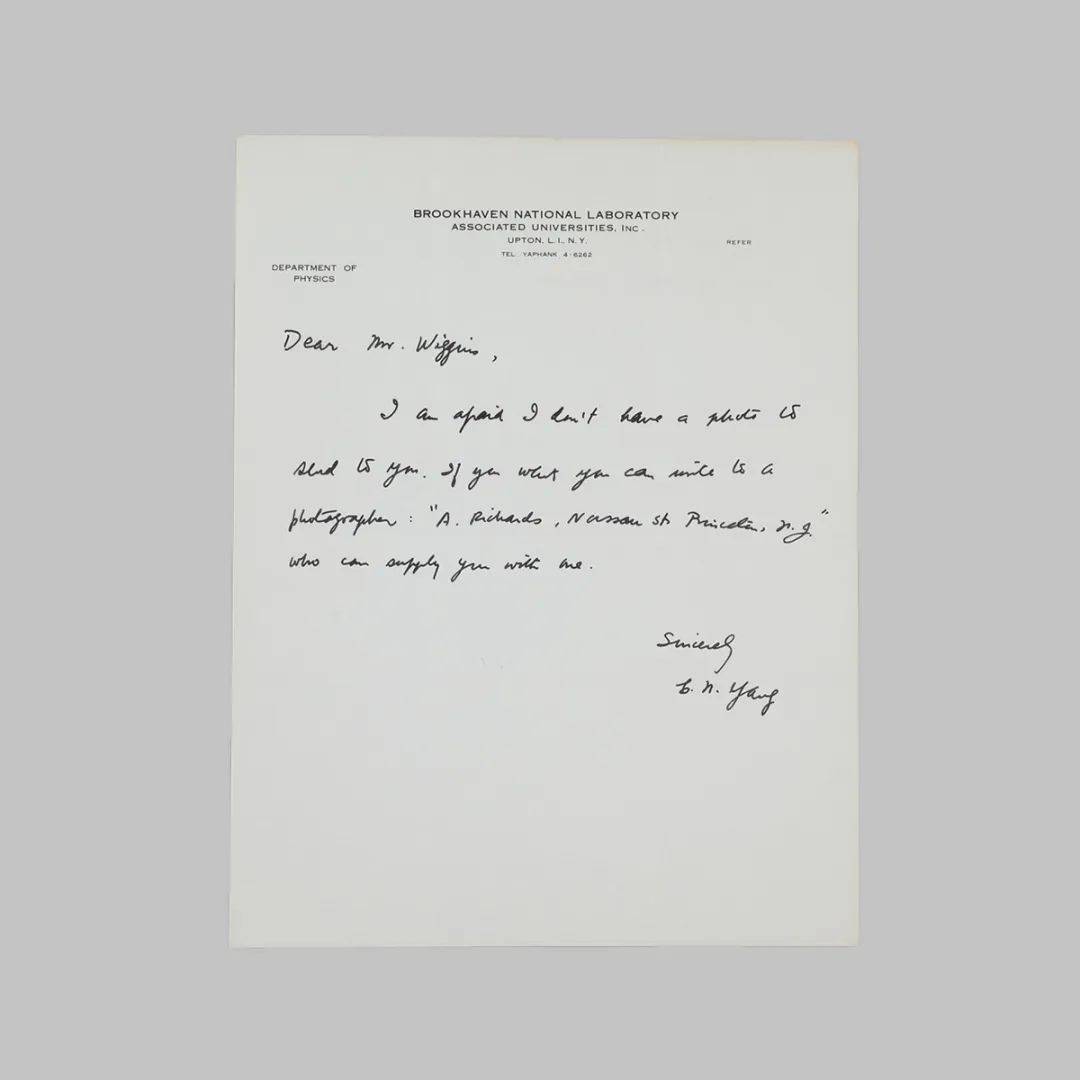 BROOKHAVEN NATIONAL LABORATORY
ASSOCIATED UNIVERSITIES, INC.
UPTON, L. I., N. Y.
REFER
TEL. YAPHANK 4-6262
DEPARTMENT OF
PHYSICS
Dear Mr. Wiggins,
I am afraid I don't have a photo to
send to you. If you want you can write to a
photographer : "A. Richards, Nassau St. Princeton, N.J."
who can supply you with one.
Sincerely
C. N. Yang